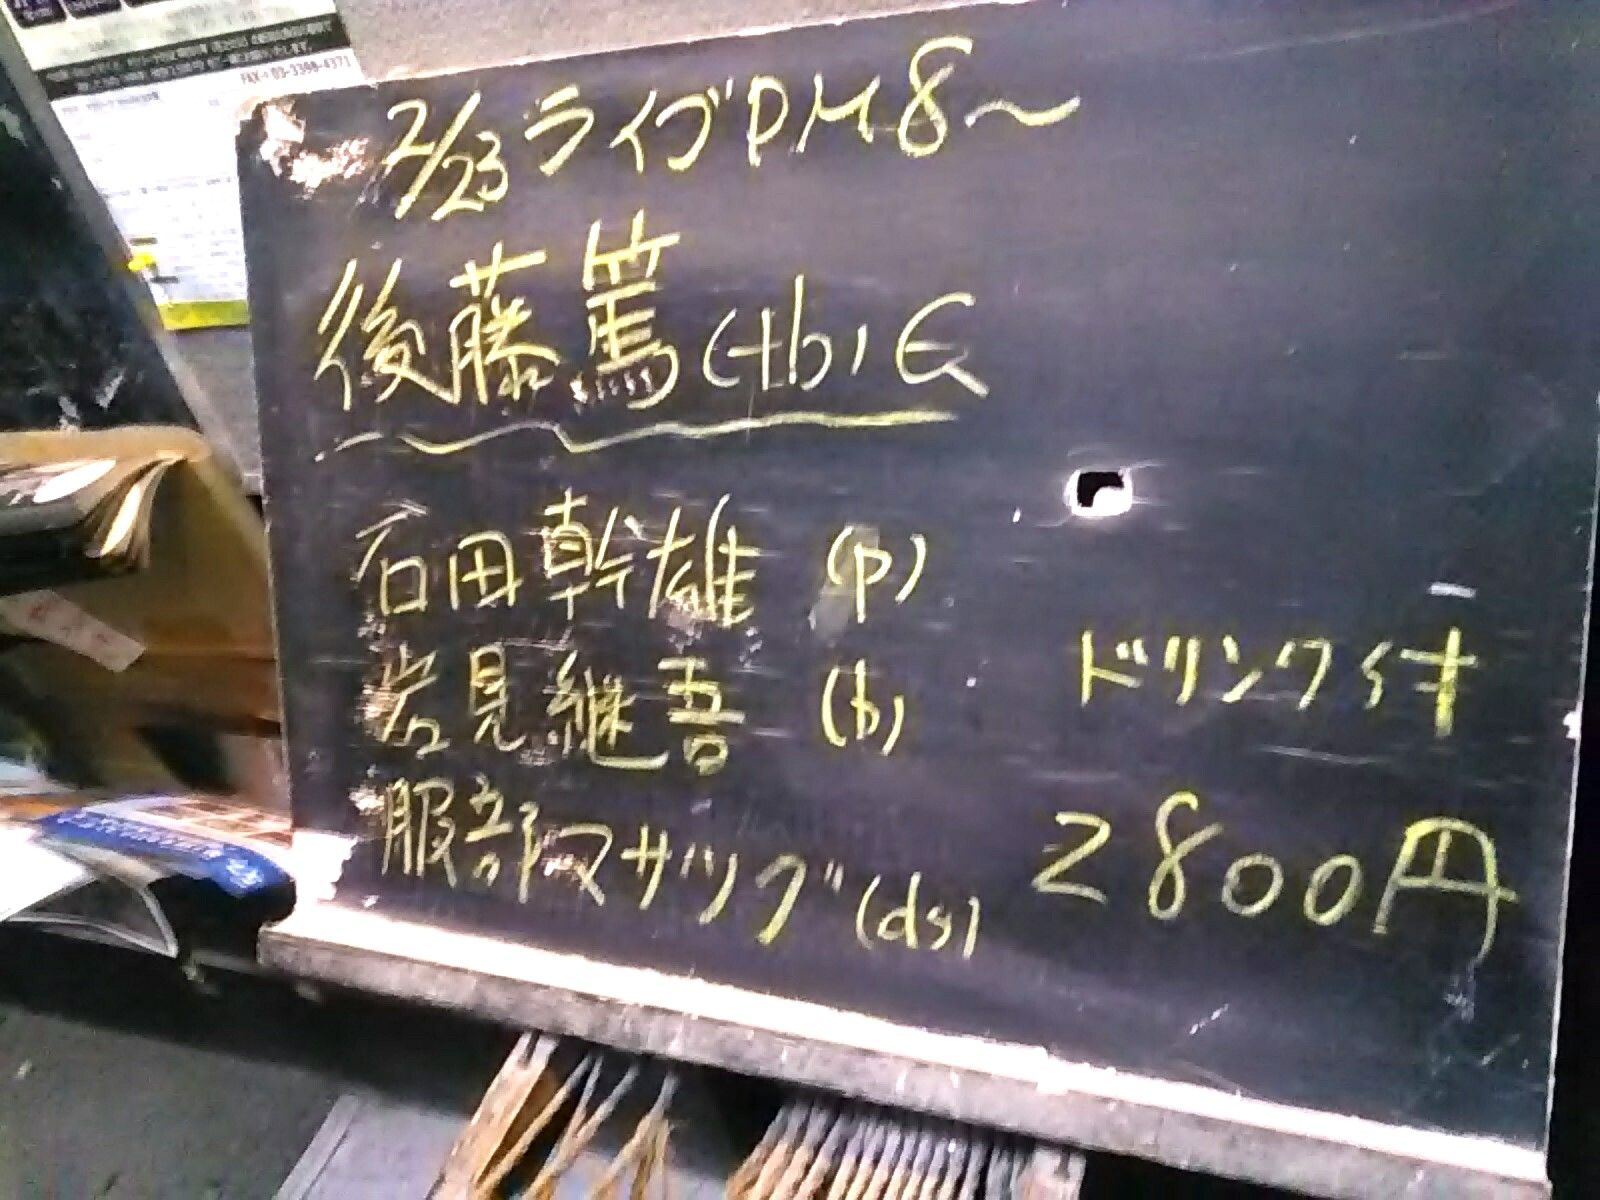 FAX:03-3398-4371
2/23 ライブ PM8～
後藤篤(tb)Q
石田幹雄 (p)
岩見継吾 (b)
服部マサツグ(ds)
ドリンク付
2800円